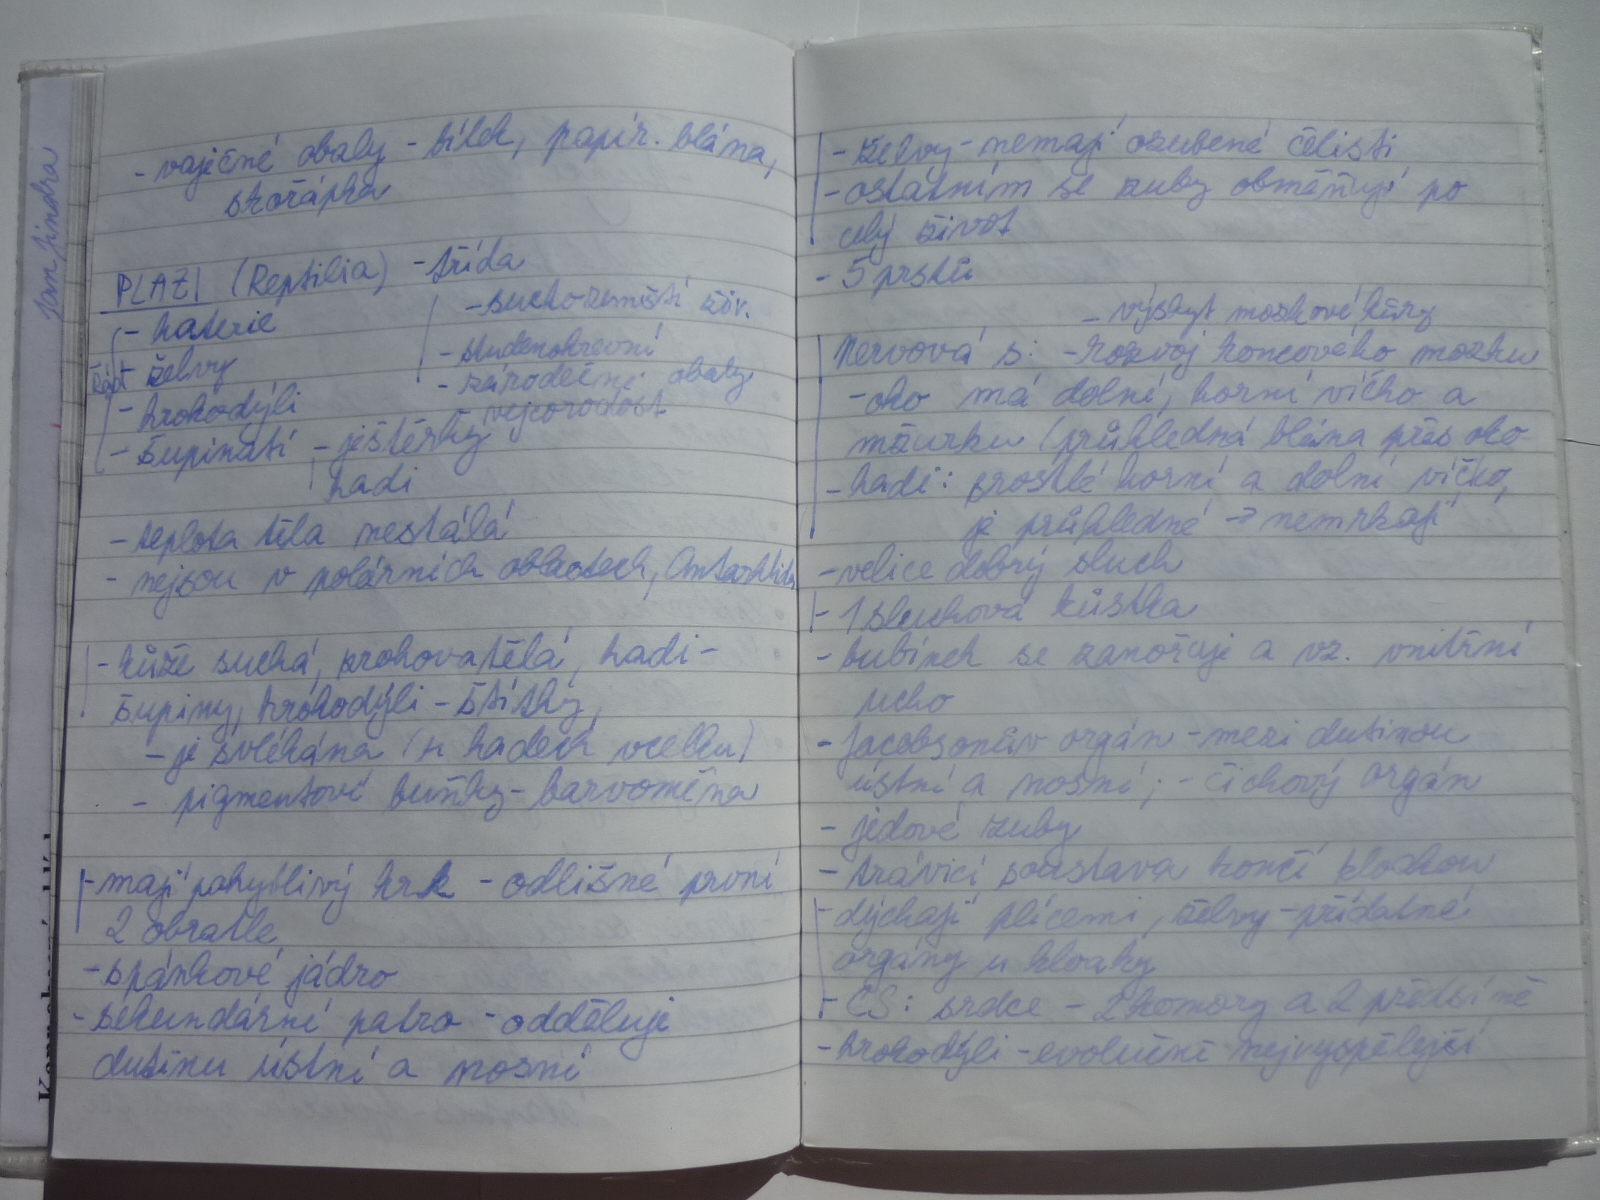 Jan Jindra
- vaječné obaly - bílek, papír. blána,
skořápka
PLAZI (Reptilia) - třída
- haterié
řád želvy
- krokodýli
- šupinatí - ještěrky
hadi
- suchozemští živ.
- studenokrevní
- zárodečné obaly
vejcorodost
- teplota těla nestálá
- nejsou v polárních oblastech, Antarktida
- kůže suchá, zrohovatělá, hadi -
šupiny, krokodýli - štítky,
- je svlékána (u hadech vcelku)
- pigmentové buňky - barvoměna
- mají pohyblivý krk - odlišné první
2 obratle
- spánkové jádro
- sekundární patro - odděluje
dutinu ústní a nosní
- želvy - nemají ozubené čelisti
- ostatním se zuby obměňují po
celý život
- 5 prstů
- výskyt mozkové kůry
Nervová s: - rozvoj koncového mozku
- oko má dolní, horní víčko a
mžurku (průhledná blána přes oko
- hadi: srostlé horní a dolní víčko,
je průhledné → nemrkají
- velice dobrý sluch
- 1 sluchová kůstka
- bubínek se zanořuje a vz. vnitřní
ucho
- Jacobsonův orgán - mezi dutinou
ústní a nosní; - čichový orgán
- jedové zuby
- trávicí soustava končí kloakou
- dýchají plícemi, želvy - přídatné
orgány u kloaky
- CS: srdce - 2 komory a 2 předsíně
- krokodýli - evolučně nejvyspělejší